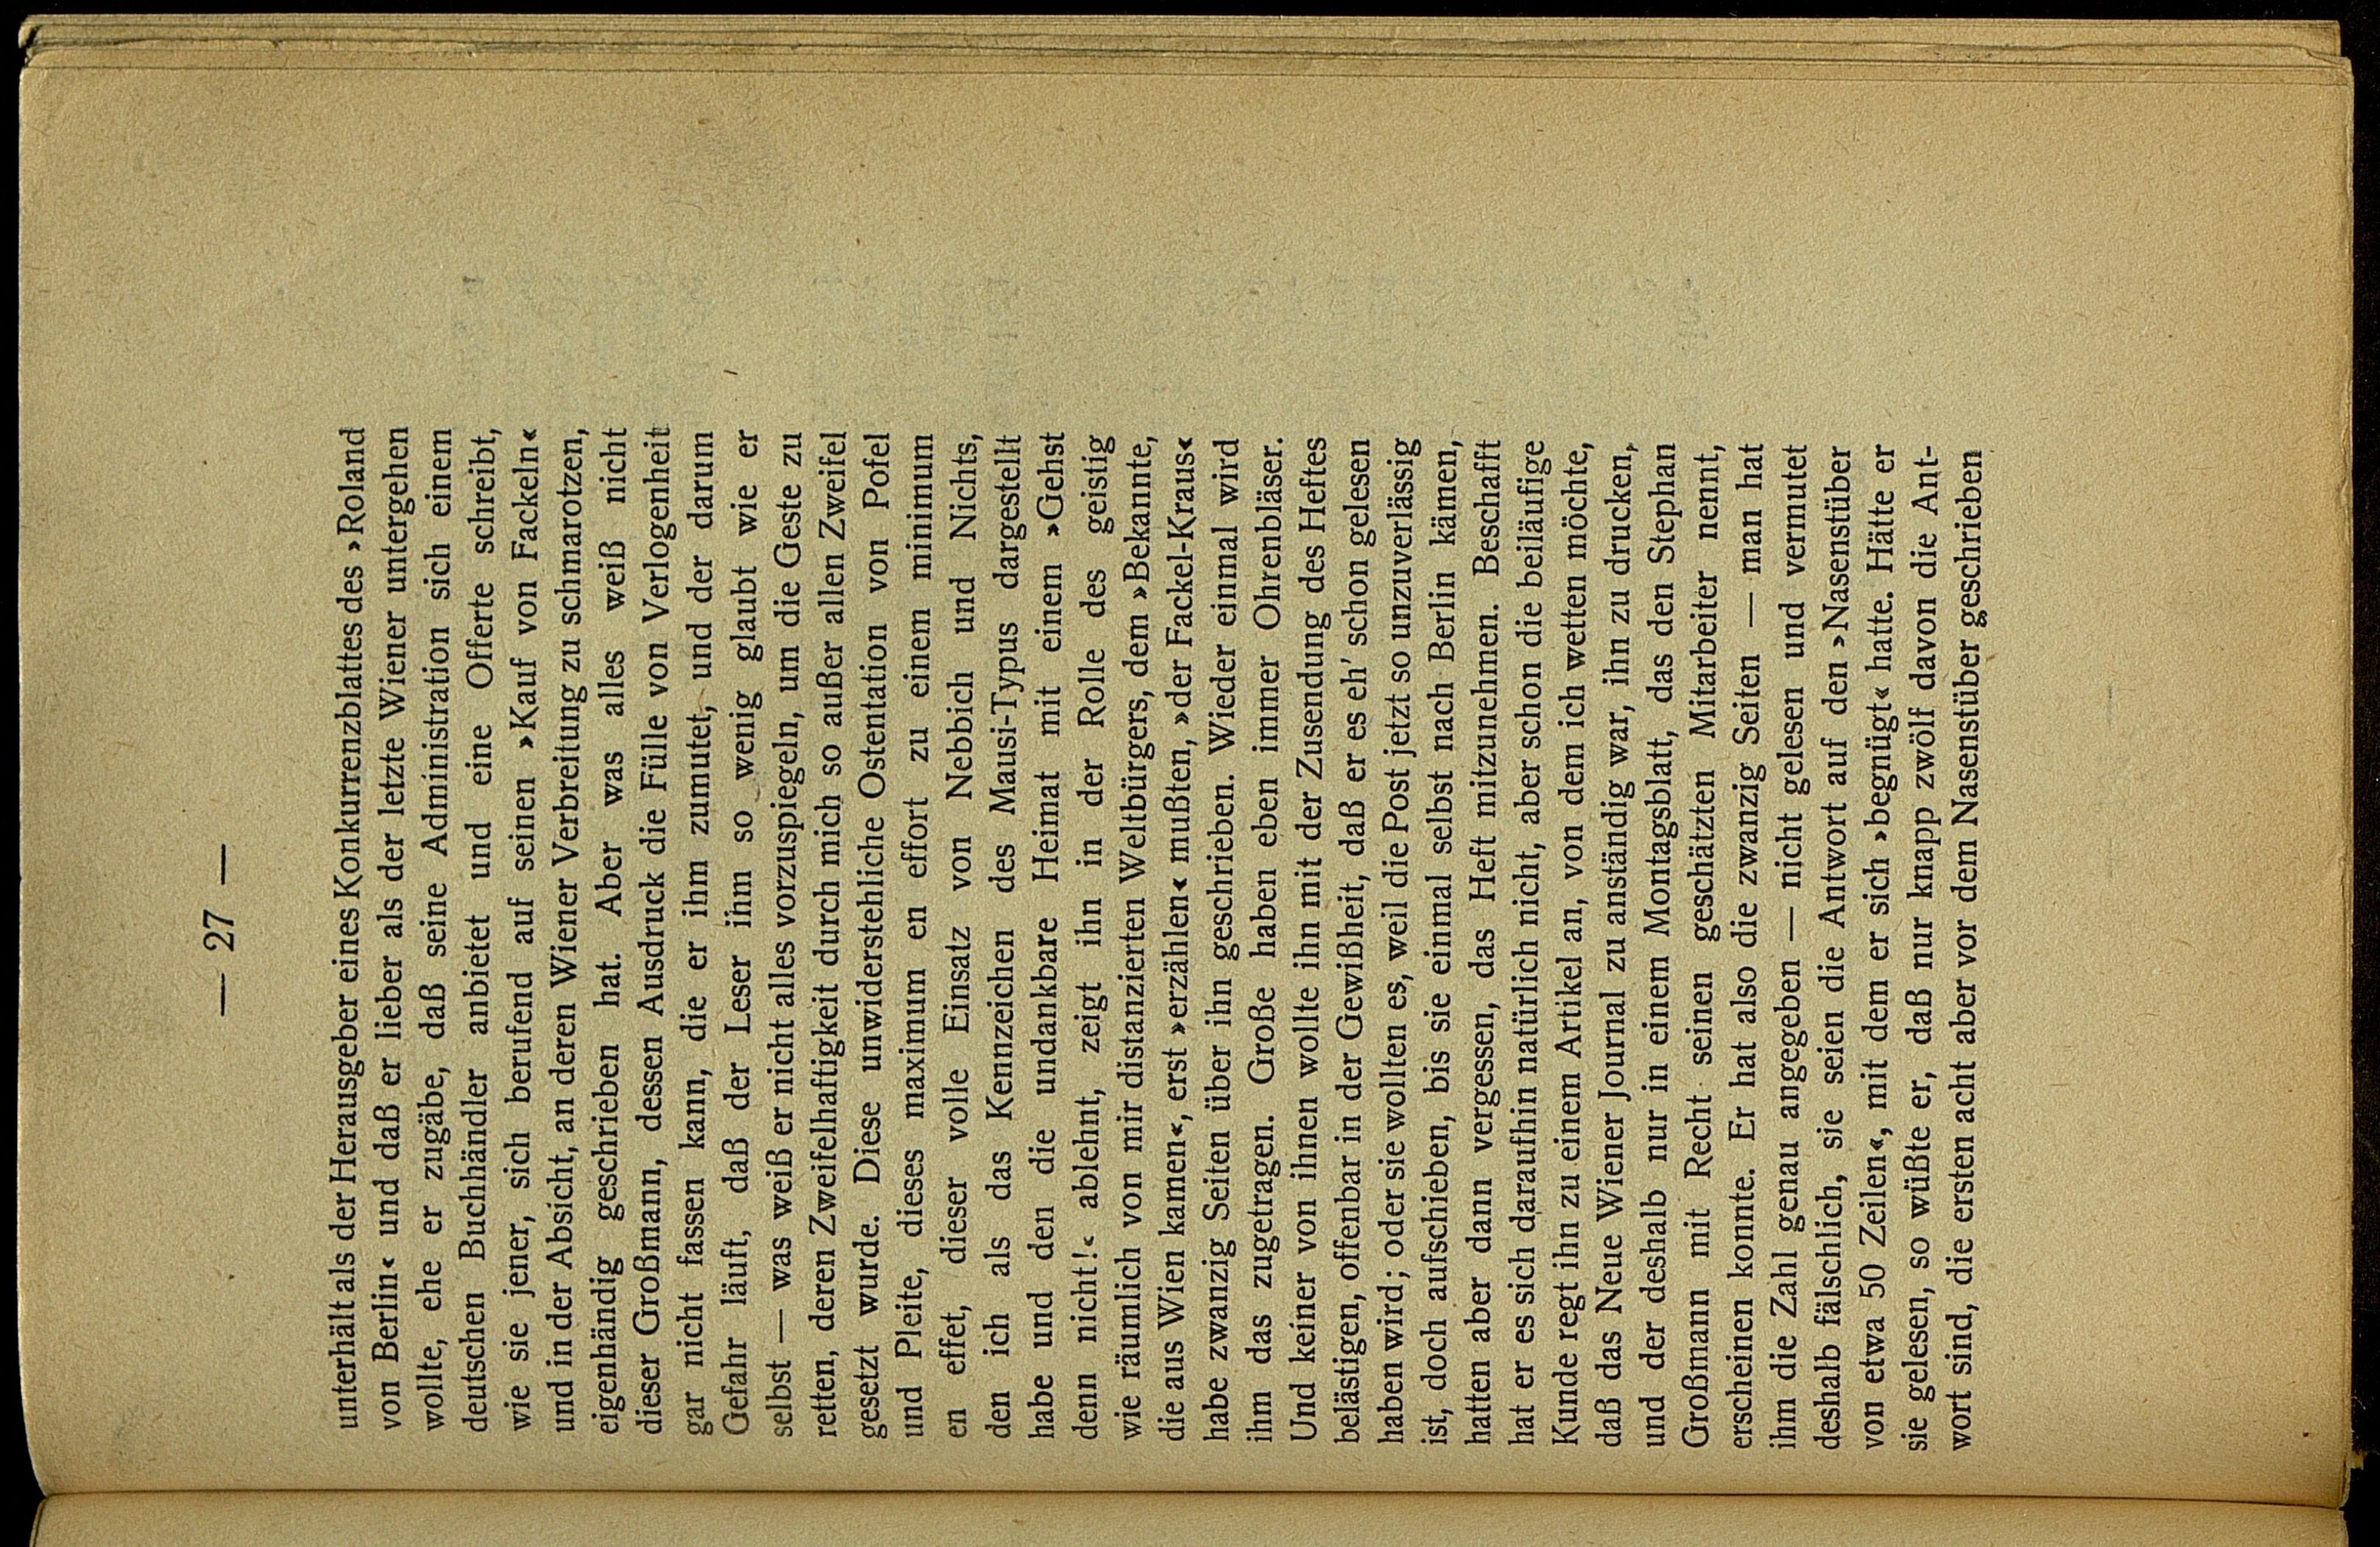 — 27 —
unterhält als der Herausgeber eines Konkurrenzblattes des ›Roland
von Berlin‹ und daß er lieber als der letzte Wiener untergehen
wollte, ehe er zugäbe, daß seine Administration sich einem
deutschen Buchhändler anbietet und eine Offerte schreibt,
wie sie jener, sich berufend auf seinen »Kauf von Fackeln«
und in der Absicht, an deren Wiener Verbreitung zu schmarotzen,
eigenhändig geschrieben hat. Aber was alles weiß nicht
dieser Großmann, dessen Ausdruck die Fülle von Verlogenheit
gar nicht fassen kann, die er ihm zumutet, und der darum
Gefahr läuft, daß der Leser ihm so wenig glaubt wie er
selbst — was weiß er nicht alles vorzuspiegeln, um die Geste zu
retten, deren Zweifelhaftigkeit durch mich so außer allen Zweifel
gesetzt wurde. Diese unwiderstehliche Ostentation von Pofel
und Pleite, dieses maximum en effort zu einem minimum
en effet, dieser volle Einsatz von Nebbich und Nichts,
den ich als das Kennzeichen des Mausi-Typus dargestellt
habe und den die undankbare Heimat mit einem »Gehst
denn nicht!« ablehnt, zeigt ihn in der Rolle des geistig
wie räumlich von mir distanzierten Weltbürgers, dem »Bekannte,
die aus Wien kamen«, erst »erzählen« mußten, »der Fackel-Kraus«
habe zwanzig Seiten über ihn geschrieben. Wieder einmal wird
ihm das zugetragen. Große haben eben immer Ohrenbläser.
Und keiner von ihnen wollte ihn mit der Zusendung des Heftes
belästigen, offenbar in der Gewißheit, daß er es eh' schon gelesen
haben wird; oder sie wollten es, weil die Post jetzt so unzuverlässig
ist, doch aufschieben, bis sie einmal selbst nach Berlin kämen,
hatten aber dann vergessen, das Heft mitzunehmen. Beschafft
hat er es sich daraufhin natürlich nicht, aber schon die beiläufige
Kunde regt ihn zu einem Artikel an, von dem ich wetten möchte,
daß das Neue Wiener Journal zu anständig war, ihn zu drucken,
und der deshalb nur in einem Montagsblatt, das den Stephan
Großmann mit Recht seinen geschätzten Mitarbeiter nennt,
erscheinen konnte. Er hat also die zwanzig Seiten — man hat
ihm die Zahl genau angegeben — nicht gelesen und vermutet
deshalb fälschlich, sie seien die Antwort auf den »Nasenstüber
von etwa 50 Zeilen«, mit dem er sich »begnügt« hatte. Hätte er
sie gelesen, so wüßte er, daß nur knapp zwölf davon die Ant-
wort sind, die ersten acht aber vor dem Nasenstüber geschrieben